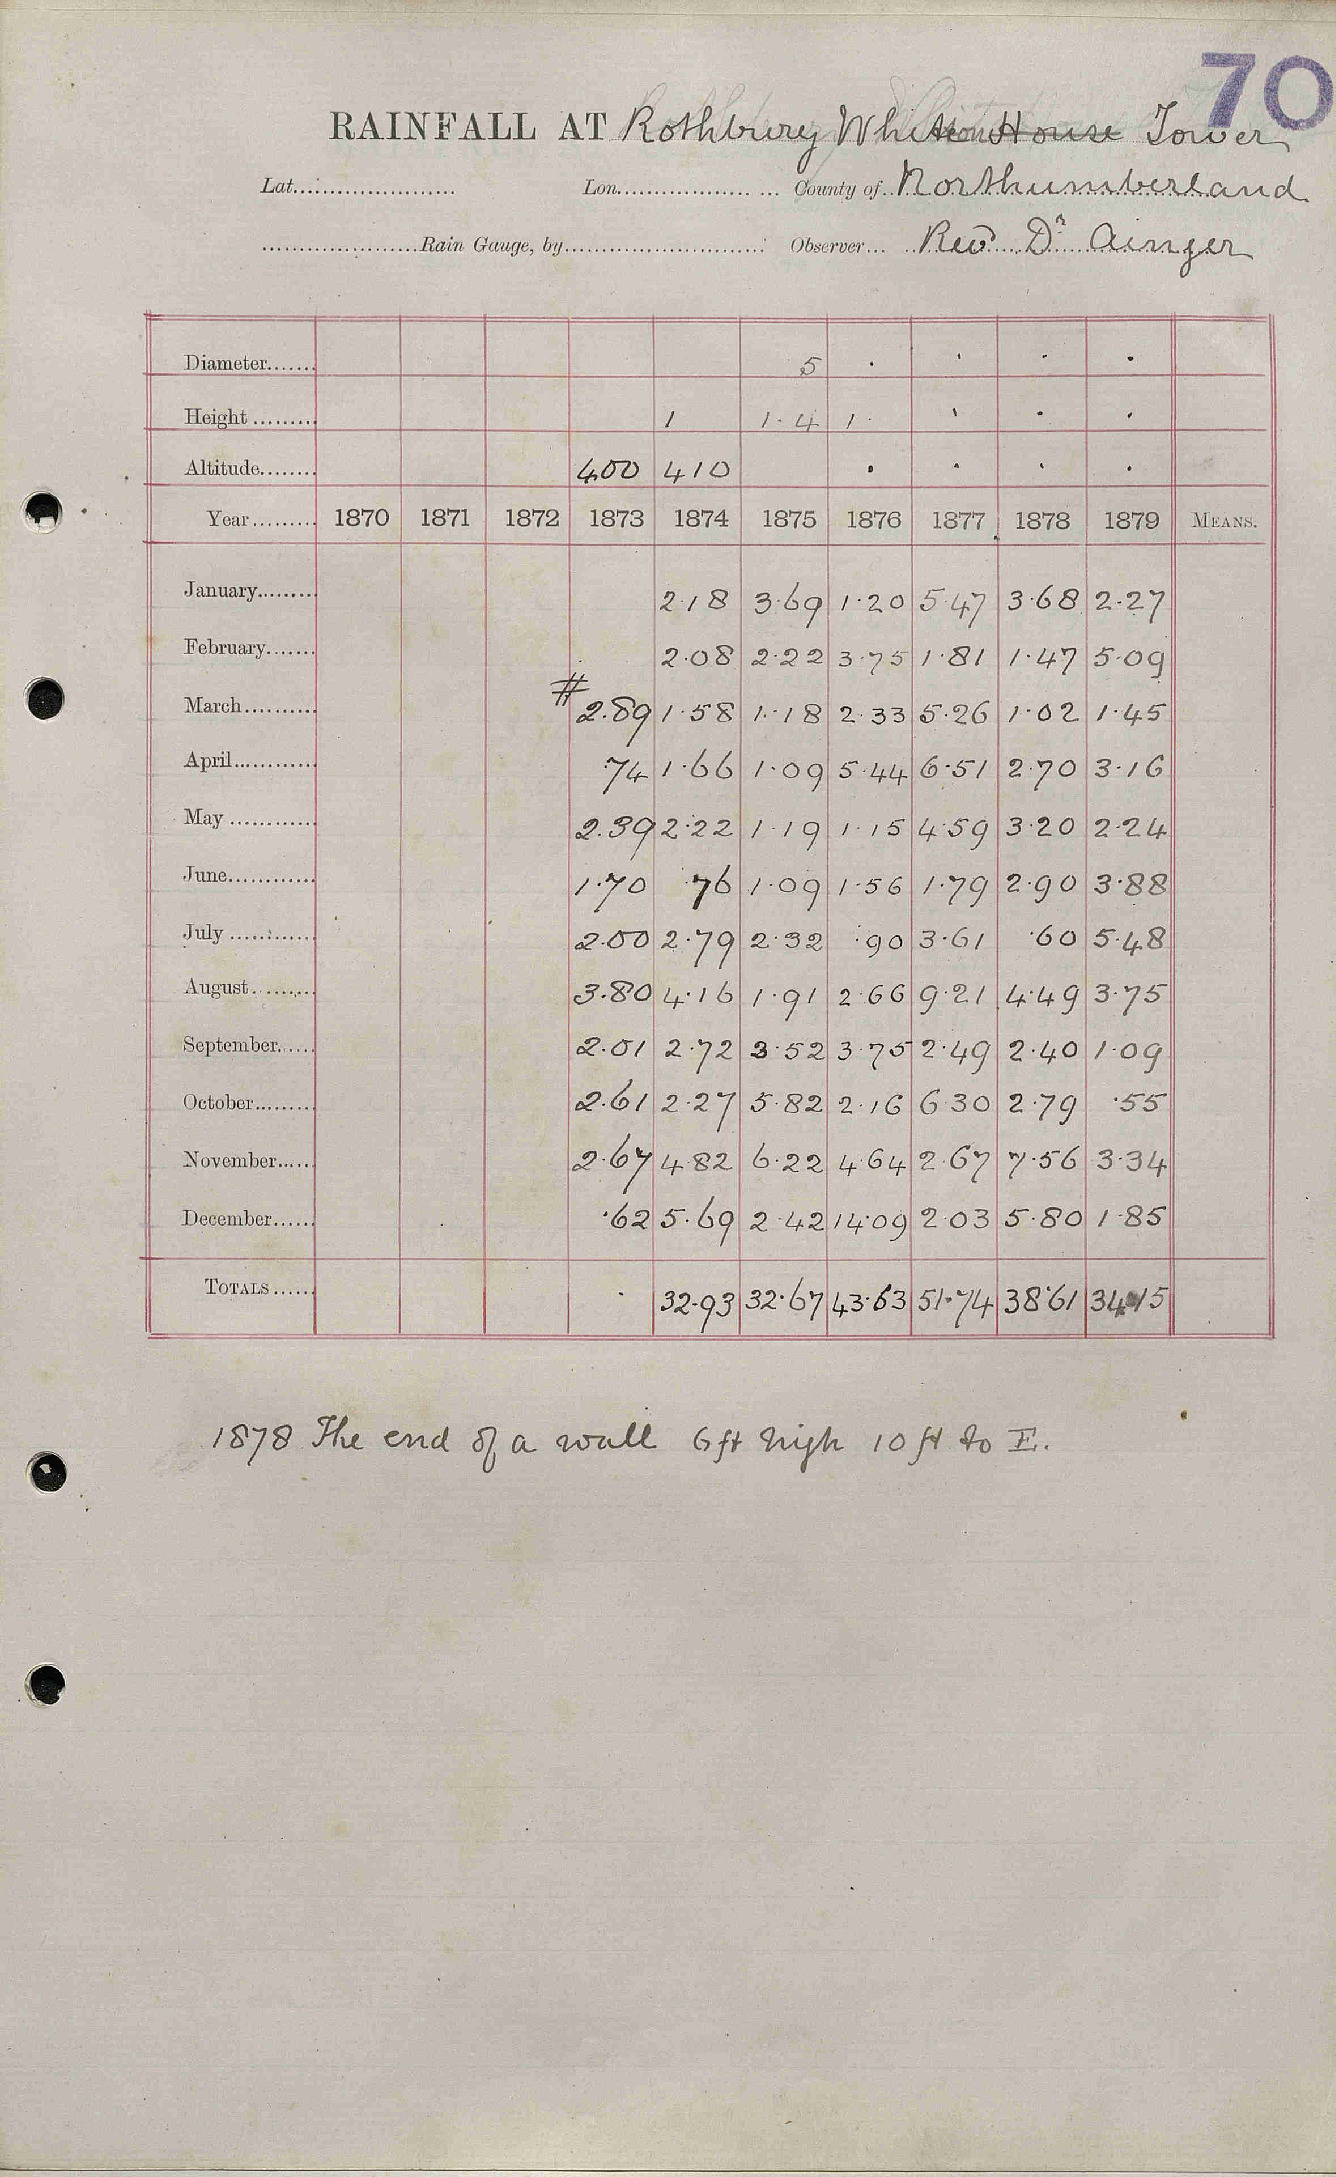 70
RAINFALL AT Rothbury Whitton House Tower
Lat. Lon. County of Northumberland
Rain Gauge, by Observer Revd Dr Ainger
Diameter 5 · · · ·
Height 1 1·4 1· · · ·
Altitude 400 410 · · · ·
Year 1870 1871 1872 1873 1874 1875 1876 1877 1878 1879 MEANS.
January 2·18 3·69 1·20 5·47 3·68 2·27
February 2·08 2·22 3·75 1·81 1·47 5·09
March # 2·89 1·58 1·18 2·33 5·26 1·02 1·45
April ·74 1·66 1·09 5·44 6·51 2·70 3·16
May 2·39 2·22 1·19 1·15 4·59 3·20 2·24
June 1·70 ·76 1·09 1·56 1·79 2·90 3·88
July 2·00 2·79 2·32 ·90 3·61 ·60 5·48
August 3·80 4·16 1·91 2·66 9·21 4·49 3·75
September 2·01 2·72 3·52 3·75 2·49 2·40 1·09
October 2·61 2·27 5·82 2·16 6·30 2·79 ·55
November 2·67 4·82 6·22 4·64 2·67 7·56 3·34
December ·62 5·69 2·42 14·09 2·03 5·80 1·85
TOTALS · 32·93 32·67 43·63 51·74 38·61 34·15
1878 The end of a wall 6 ft high 10 ft to E.